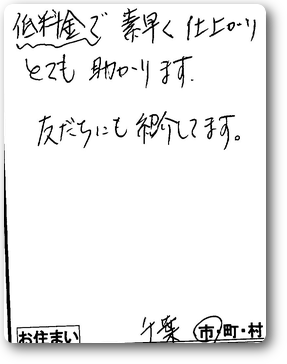 低料金で 素早く 仕上がり
とても 助かります.
友だちにも 紹介してます。
お住まい 千葉 市・町・村